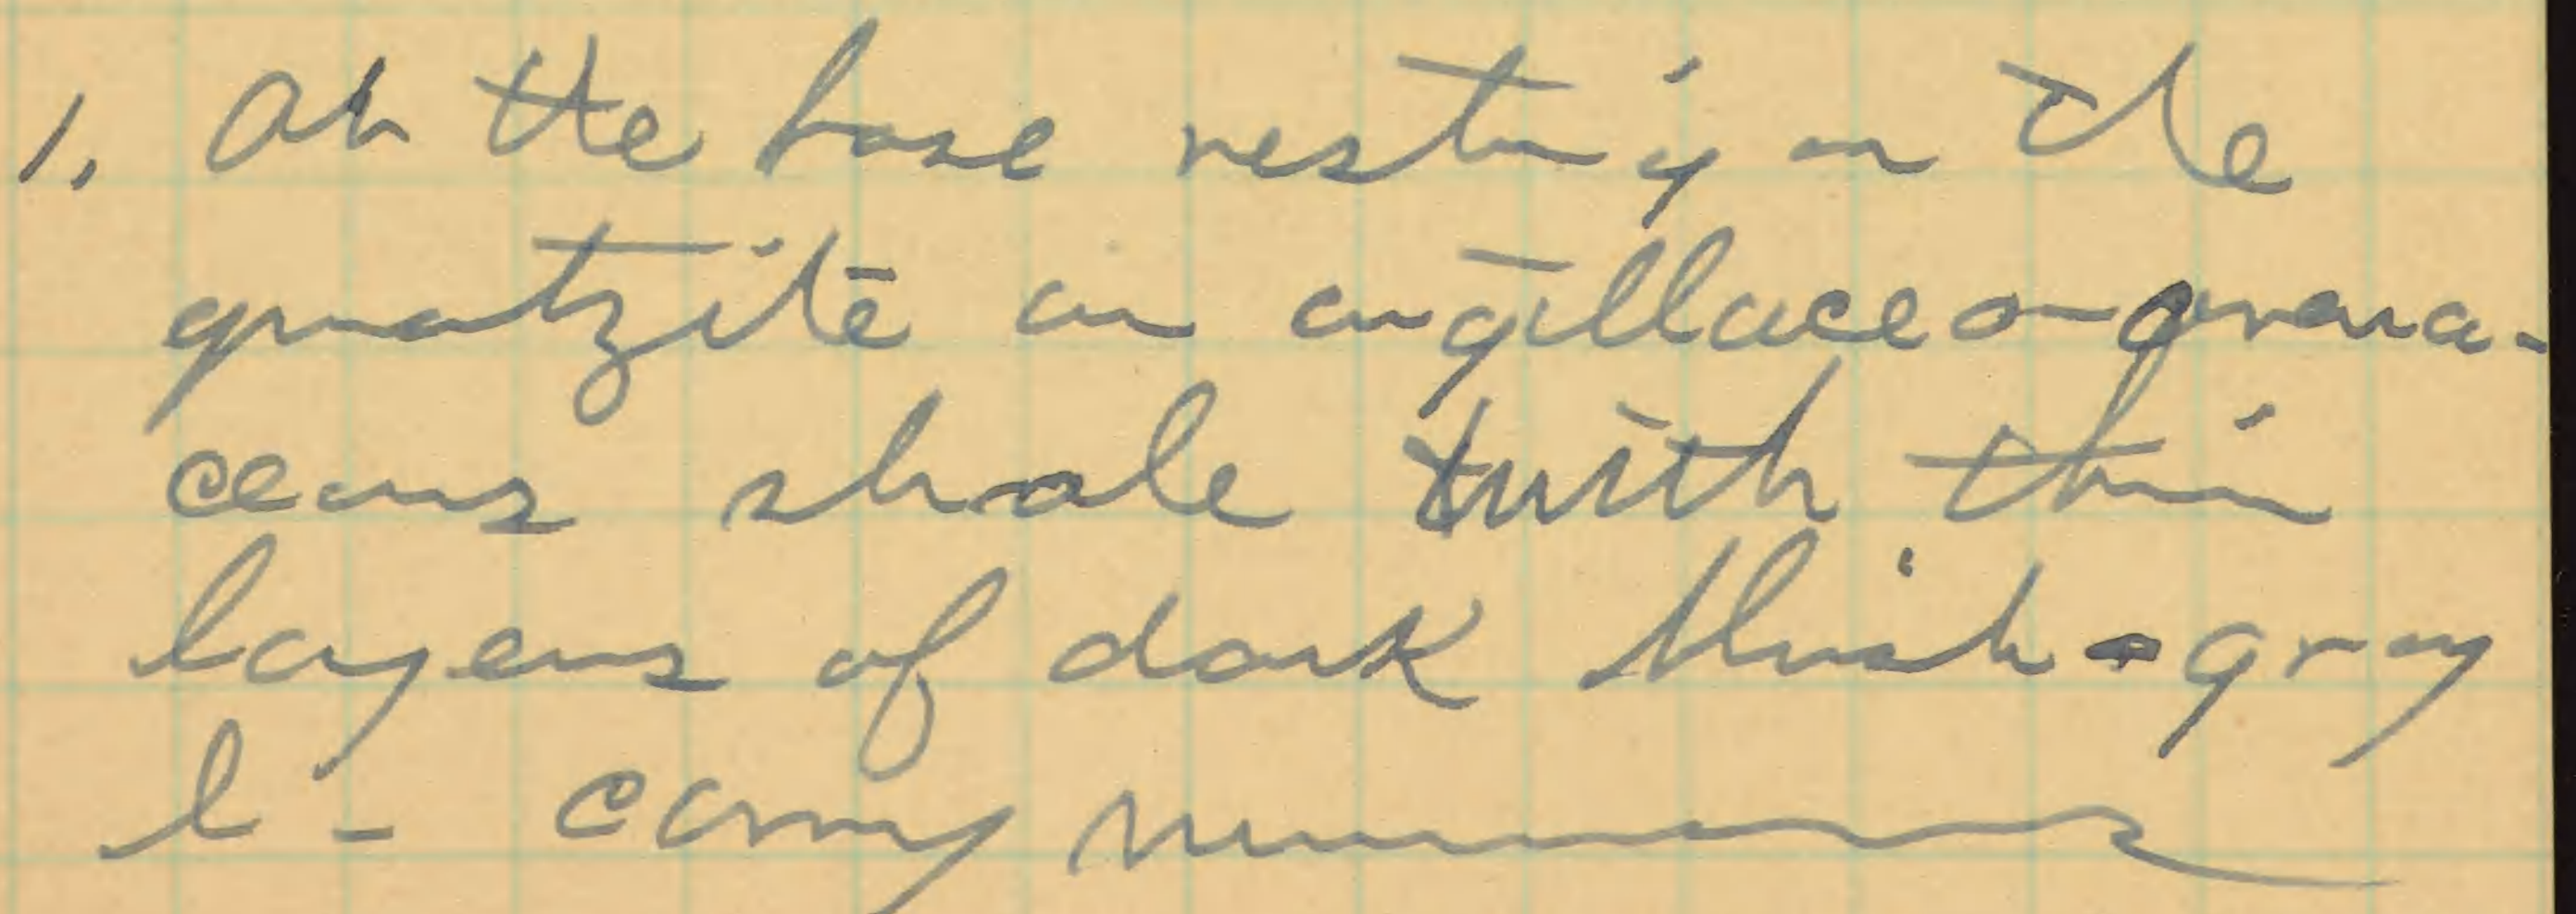 1. At the base resting on the
quartzite an argillaceo-arena-
ceous shale with thin
layers of dark bluish-gray
l- carry numerous